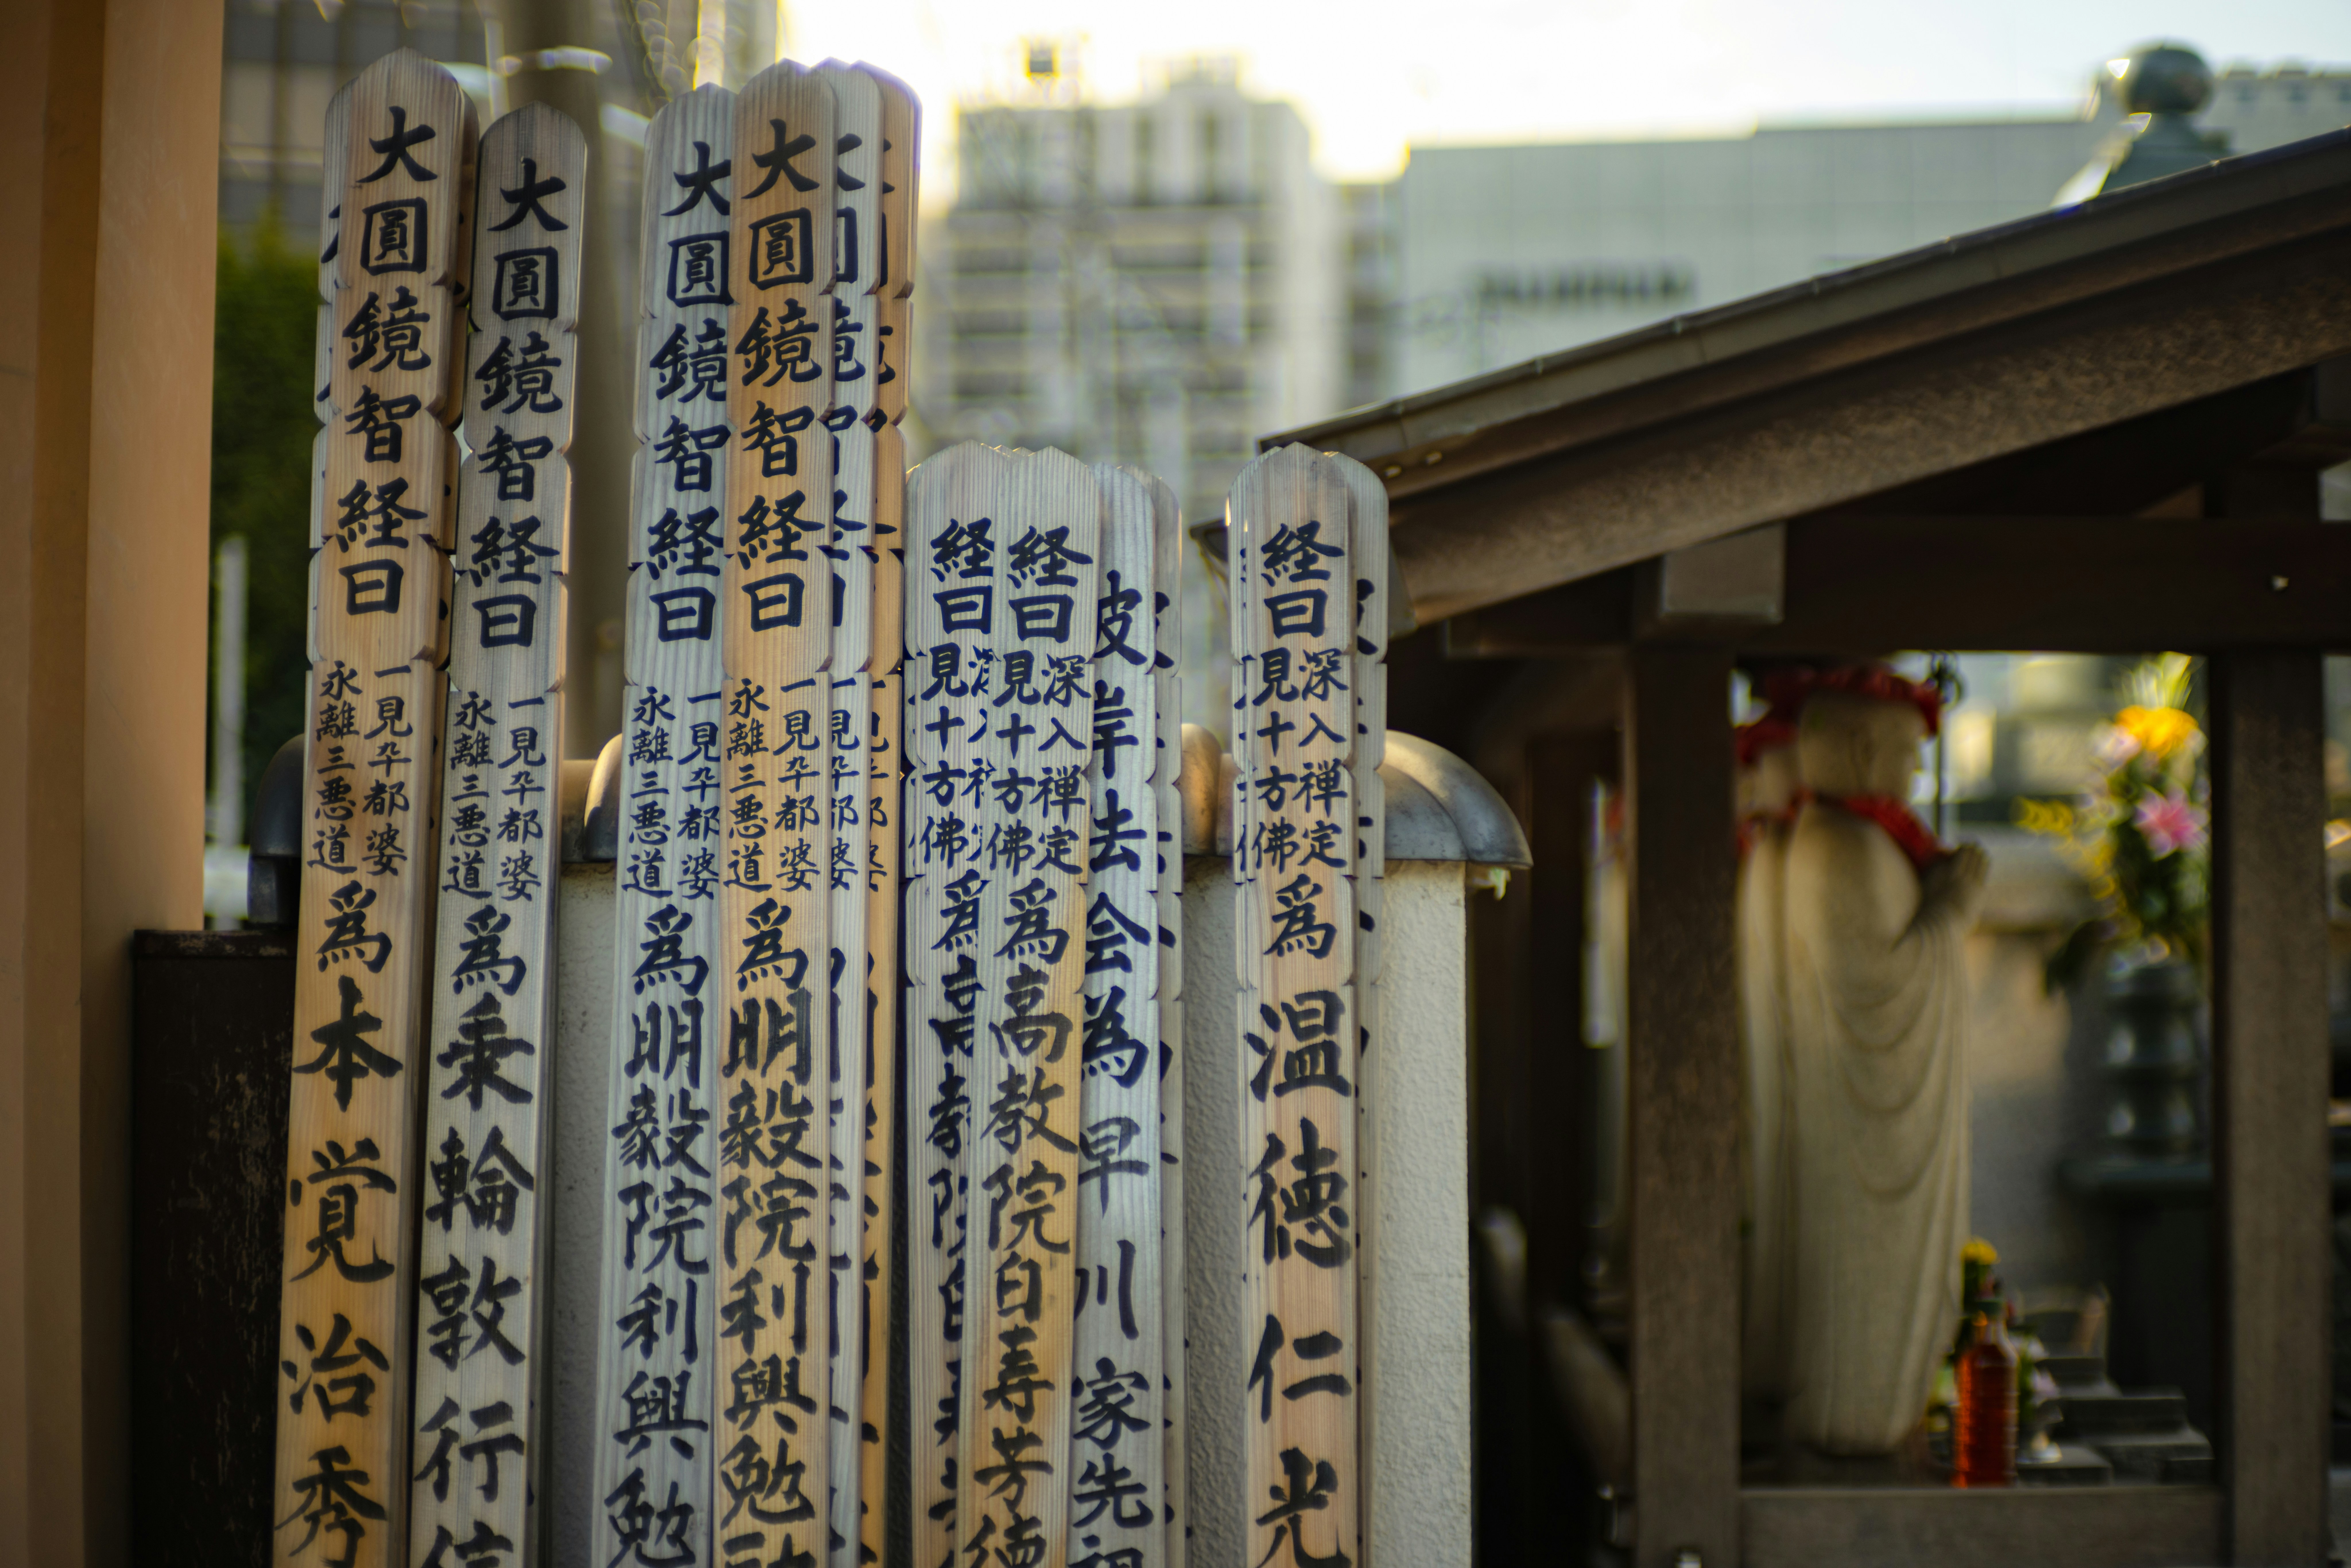 大圓鏡智経曰
一見卒都婆
永離三悪道
為本覚治秀
大圓鏡智経曰
一見卒都婆
永離三悪道
為乗輪敦行信
大圓鏡智経曰
一見卒都婆
永離三悪道
為明毅院利興勉
大圓鏡智経曰
一見卒都婆
永離三悪道
為明毅院利興勉
経曰
見十方佛
為高教院
経曰
深入禅定
見十方佛
為高教院白寿芳徳
彼岸去会為早川家先祖
経曰
深入禅定
見十方佛
為温徳仁光